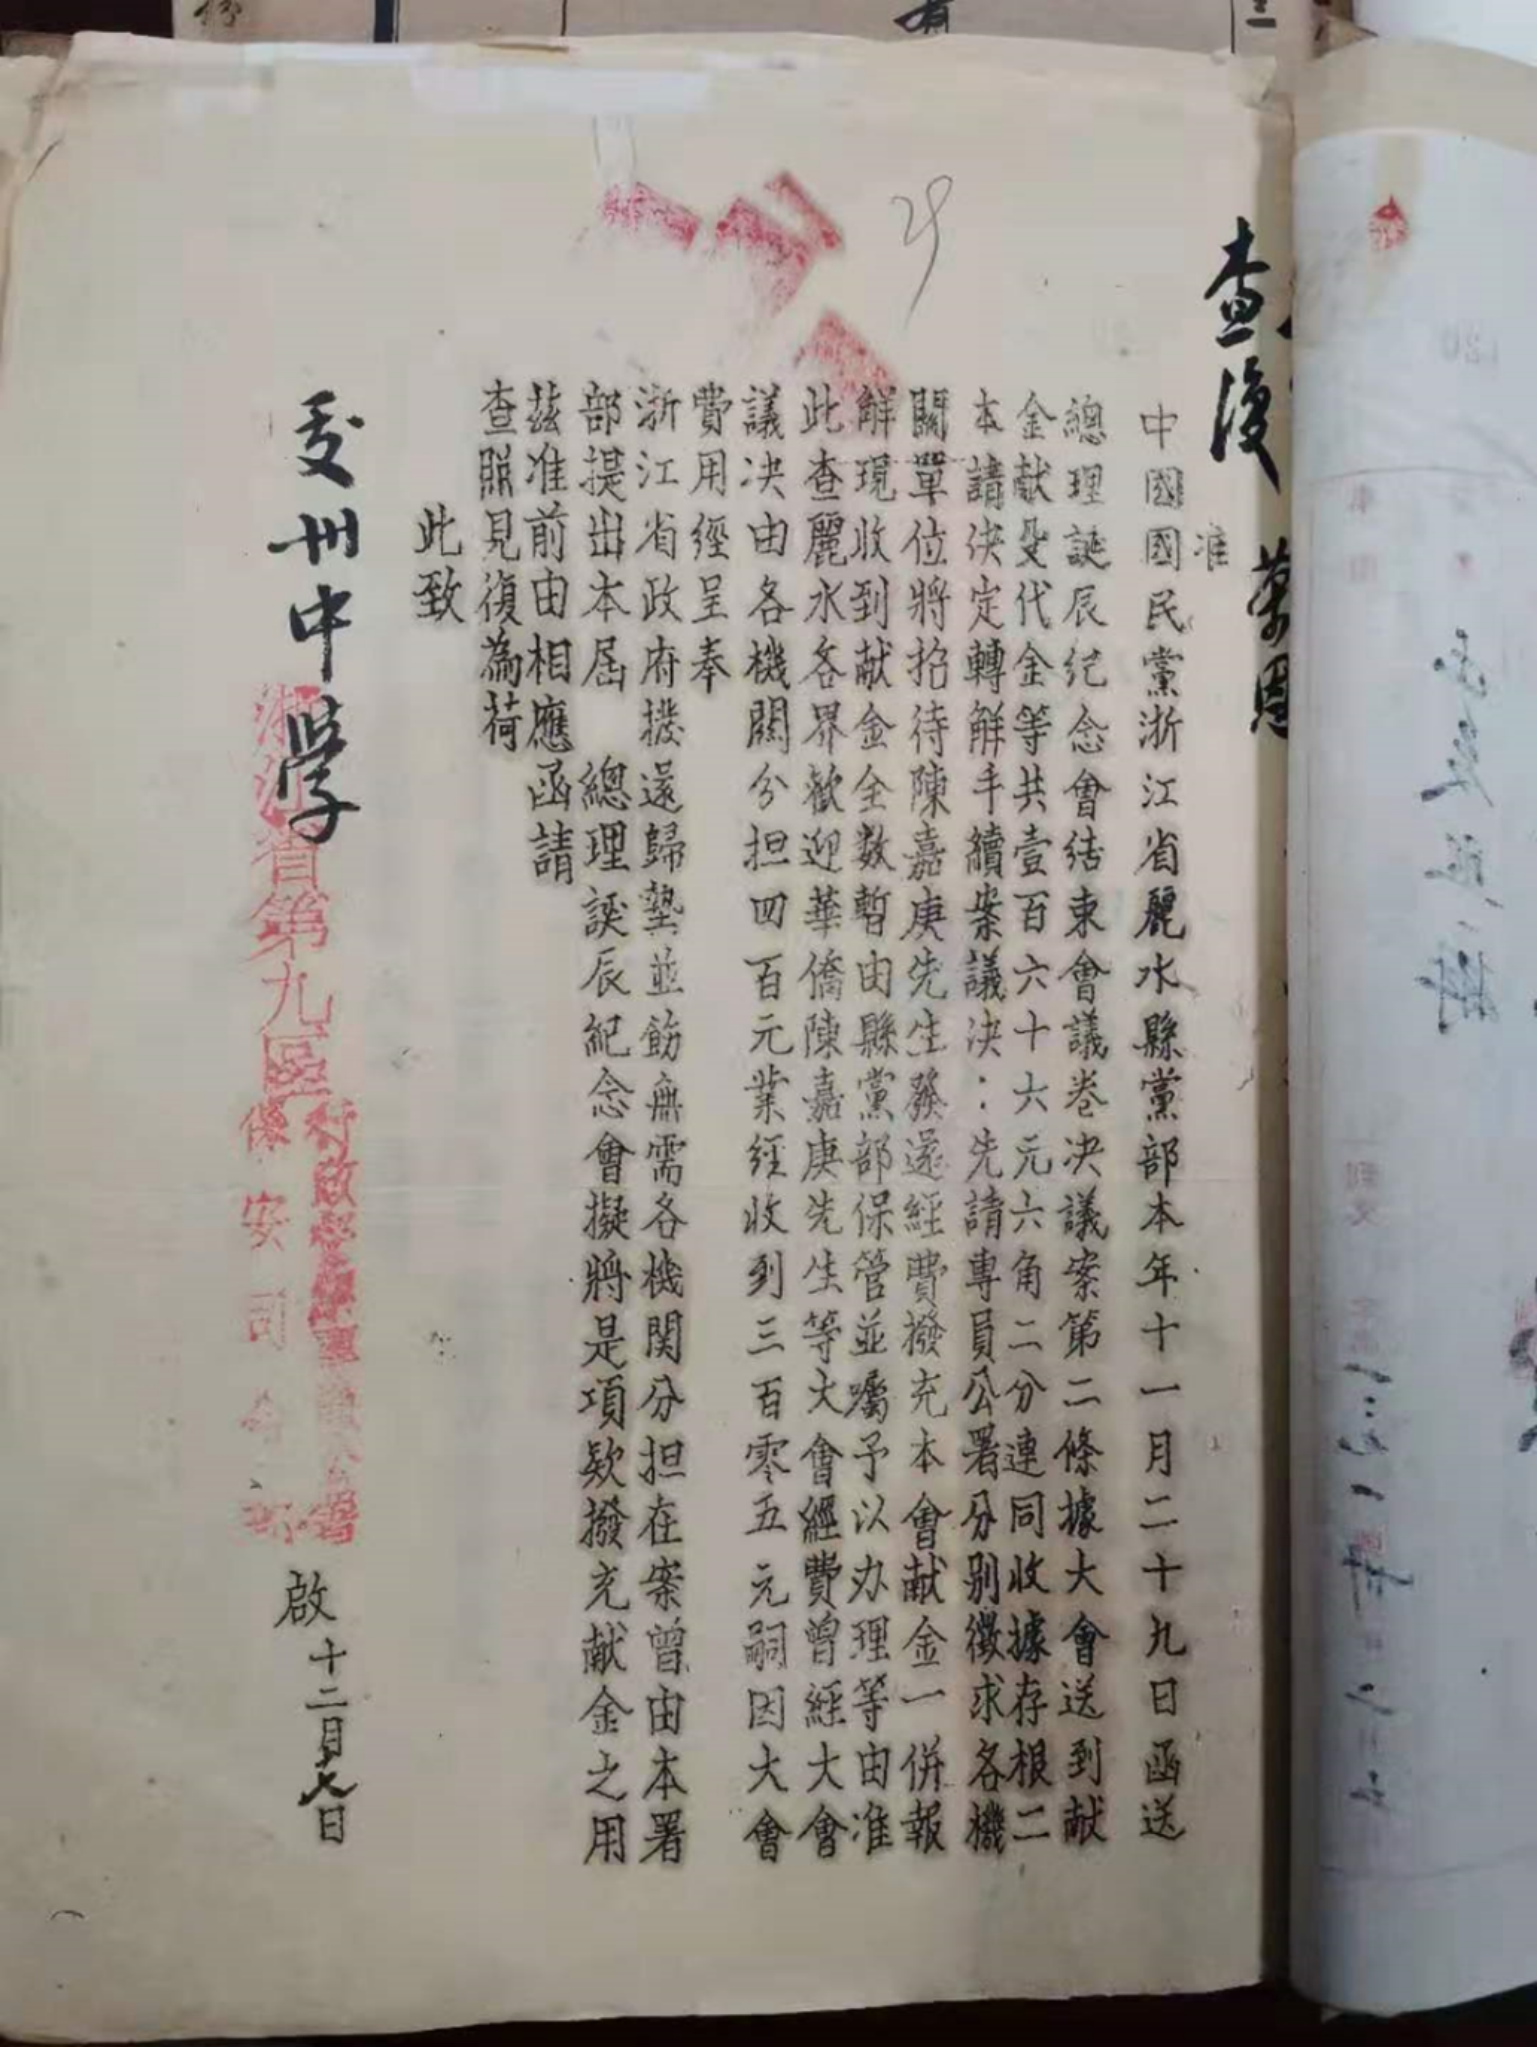 查復
准
中國國民黨浙江省麗水縣黨部本年十一月二十九日函送
總理誕辰紀念會結束會議卷決議案第二條據大會送到献
金献殳代金等共壹百六十六元六角二分連同收據存根二
本請決定轉解手續案議決：先請專員公署分别徵求各機
關單位將招待陳嘉庚先生發還經費撥充本會献金一併報
解現收到献金全数暫由縣黨部保管並囑予以办理等由准
此查麗水各界歡迎華僑陳嘉庚先生等大會經費曾經大會
議决由各機關分担四百元業經收到三百零五元嗣因大會
費用經呈奉
浙江省政府撥還歸墊並飭無需各機関分担在案曾由本署
部提出本屆 總理誕辰紀念會擬將是項欵撥充献金之用
茲准前由相應函請
查照見復為荷
此致
處州中学
浙江省第九區
保安司令部
啟
十二月七日